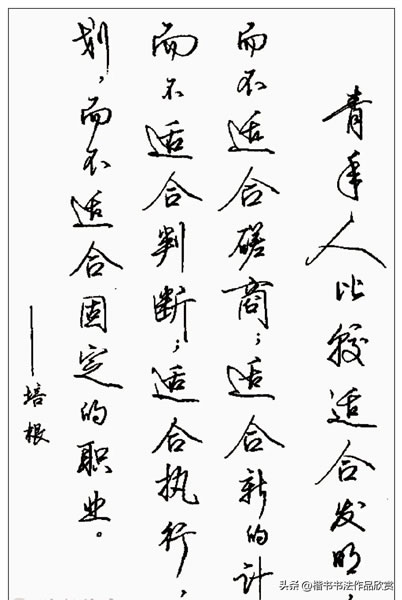 青年人比较适合发明，
而不适合磋商；适合新的计
而不适合判断；适合执行，
划，而不适合固定的职业。
——培根
头条@楷书书法作品欣赏